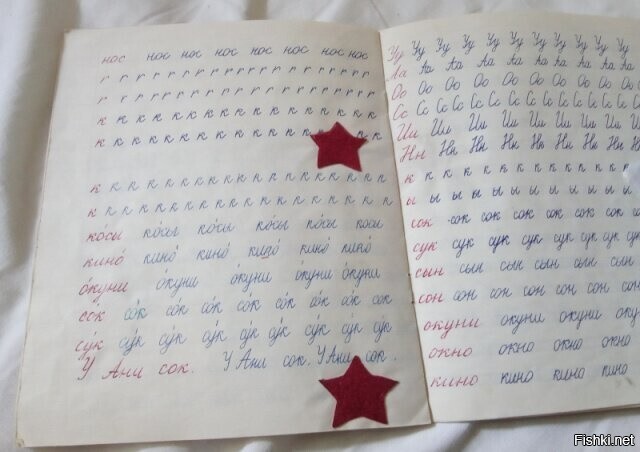 нос нос нос нос нос нос нос нос
г г г г г г г г г г г г г г г г г г г г г г
г г г г г г г г г г г г г г г г г г г г г
к к к к к к к к к к к к к к к к к к к к
к к к к к к к к к к к к к к к к к к к
к к к к к к к к к к к к к к к к к к к к
к к к к к к к к к к к к к к к к к к к к
ко́сы ко́сы ко́сы ко́сы ко́сы косы
кино́ кино́ кино́ кино́ кино́ кино́
о́куни о́куни о́куни о́куни о́куни
со́к со́к со́к со́к со́к со́к со́к сок сок
су́к су́к су́к су́к су́к су́к су́к су́к су́к
У Ани сок. У Ани сок. У Ани сок.
Уу Уу Уу Уу Уу Уу Уу Уу Уу Уу
Аа Аа Аа Аа Аа Аа Аа Аа Аа
Оо Оо Оо Оо Оо Оо Оо Оо Оо
Сс Сс Сс Сс Сс Сс Сс Сс Сс Сс Сс
Ии Ии Ии Ии Ии Ии Ии Ии
Нн Нн Нн Нн Нн Нн Нн Нн
к к к к к к к к к к к к
ы ы ы ы ы ы ы ы ы ы
сок сок сок сок сок сок сок
сук сук сук сук сук сук сук
сын сын сын сын сын сын
сон сон сон сон сон сон сон
окуни окуни окуни
окно окно окно окно
кино кино кино кино
Fishki.net